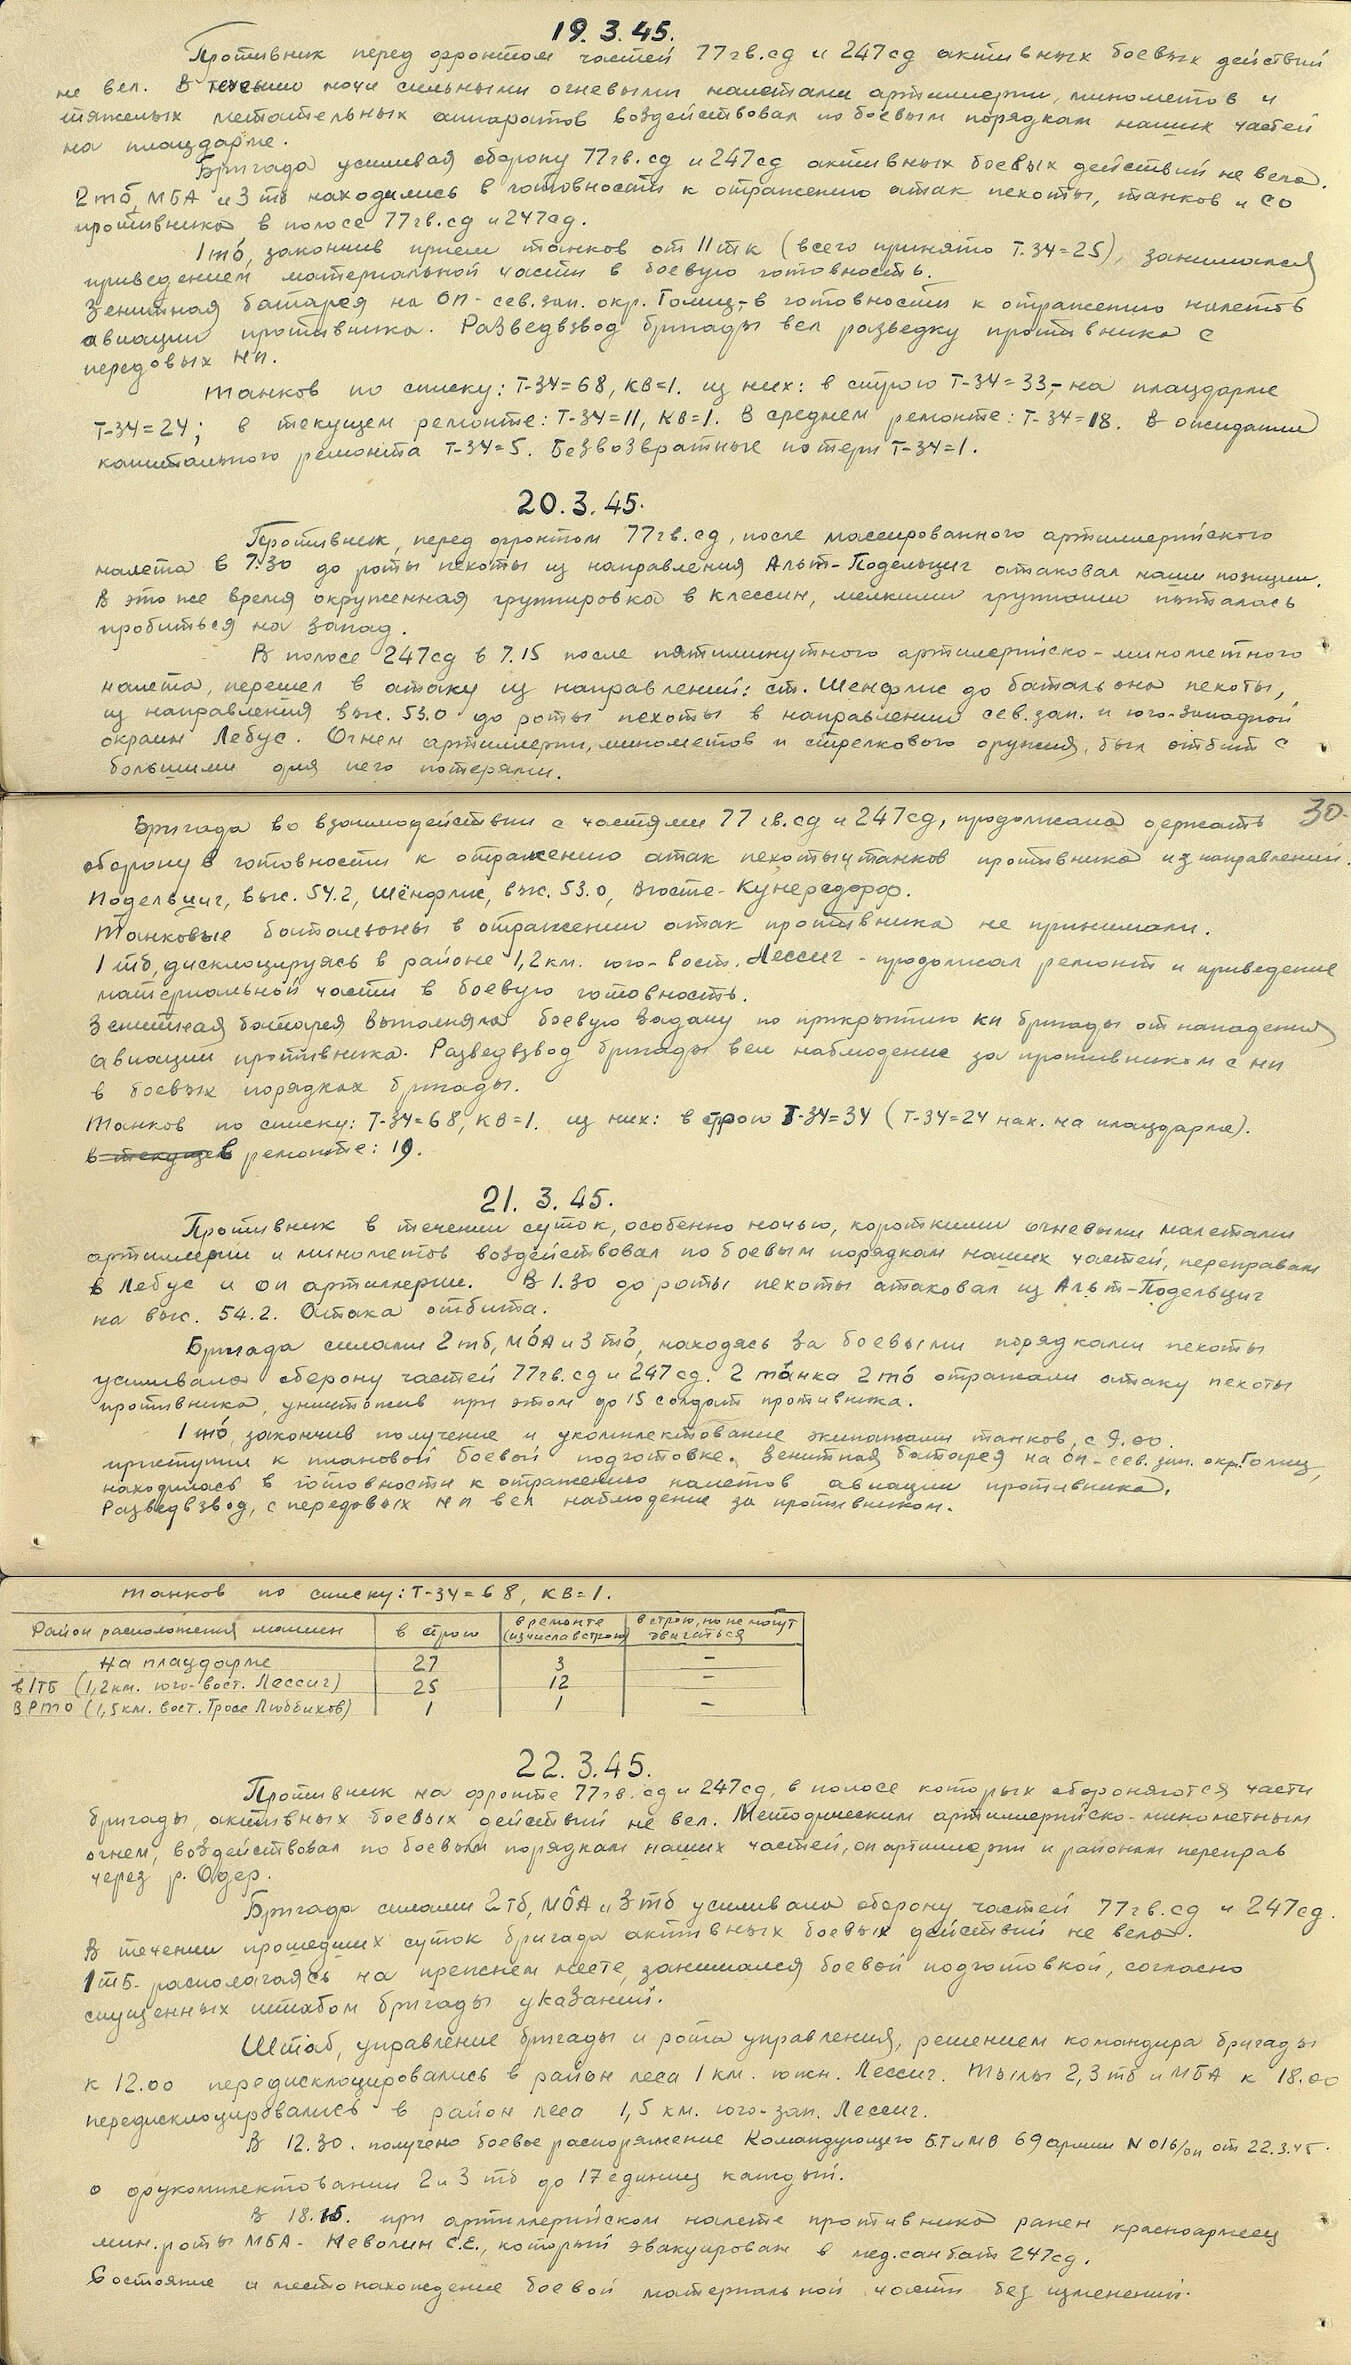 19.3.45.
Противник перед фронтом частей 77гв.сд и 247сд активных боевых действий
не вел. В течении ночи сильными огневыми налетами артиллерии, минометов и
тяжелых метательных аппаратов воздействовал по боевым порядкам наших частей
на плацдарме.
Бригада усиливая оборону 77гв.сд и 247сд активных боевых действий не вела.
2тб, МБА и 3тб находились в готовности к отражению атак пехоты, танков и СО
противника в полосе 77гв.сд и 247сд.
1тб, закончив прием танков от 11тк (всего принято Т.34=25), занимался
приведением материальной части в боевую готовность.
Зенитная батарея на ОП- сев.зап. окр. Голиц,-в готовности к отражению налетв
авиации противника. Разведвзвод бригады вел разведку противника с
передовых НП.
Танков по списку: Т-34=68, КВ=1. из них: в строю Т-34=33,-на плацдарме
Т-34=24; в текущем ремонте: Т-34=11, КВ=1. В среднем ремонте: Т-34=18. В ожидании
капитального ремонта Т-34=5. Безвозвратные потери Т-34=1.
20.3.45.
Противник, перед фронтом 77гв.сд, после массированного артиллерийского
налета в 7.30 до роты пехоты из направления Альт-Подельциг атаковал наши позиции.
В это же время окруженная группировка в Клессин, мелкими группами пыталась
пробиться на запад.
В полосе 247сд в 7.15 после пятиминутного артилерийско-минометного
налета, перешел в атаку из направлений: ст. Шенфлис до батальона пехоты,
из направления выс. 53.0 до роты пехоты в направлении сев.зап. и юго-западной
окраин Лебус. Огнем артиллерии, минометов и стрелкового оружия, был отбит с
большими для него потерями.
30.
Бригада во взаимодействии с частями 77гв.сд и 247сд, продолжала держать
оборону в готовности к отражению атак пехоты и танков противника из направлений.
Подельциг, выс. 54.2, Шёнфлис, выс. 53.0, Вюсте-Кунерсдорф.
Танковые батальоны в отражении атак противника не принимали.
1тб, дисклоцируясь в районе 1,2км. юго-вост. Лессиг - продолжал ремонт и приведение
материальной части в боевую готовность.
Зенитная батарея выполняла боевую задачу по прикрытию КП бригады от нападения
авиации противника. Разведвзвод бригады вел наблюдение за противником с НП
в боевых порядках бригады.
Танков по списку: Т-34=68, КВ=1. из них: в строю Т-34=34 (Т-34=24 нах. на плацдарме).
в текуще в ремонте: 19.
21. 3. 45.
Противник в течении суток, особенно ночью, короткими огневыми налетами
артиллерии и минометов воздействовал по боевым порядкам наших частей, переправам
в Лебус и ОП артиллерии. В 1.30 до роты пехоты атаковал из Альт-Подельциг
на выс. 54.2. Атака отбита.
Бригада силами 2тб, МБА и 3тб, находясь за боевыми порядками пехоты
усиливала оборону частей 77гв.сд и 247сд. 2 танка 2тб отражали атаку пехоты
противника, уничтожив при этом до 15 солдат противника.
1тб, закончив получение и укомплектование экипажами танков, с 9.00.
приступил к плановой боевой подготовке. Зенитная батарея на ОП-сев.зап. окр.Голиц,
находилась в готовности к отражению налетов авиации противника.
Разведвзвод, с передовых НП вел наблюдение за противником.
Танков по списку: Т-34=68, КВ=1.
Район расположения машин | в строю | в ремонте (из числа в строю) | в строю, но не могут двигаться
На плацдарме | 27 | 3 | -
в 1ТБ (1,2км. юго-вост. Лессиг) | 25 | 12 | -
В РТО (1,5км. вост. Гросс Люббихов) | 1 | 1 | -
22.3.45.
Противник на фронте 77гв.сд и 247сд, в полосе которых обороняются части
бригады, активных боевых действий не вел. Методическим артиллерийско-минометным
огнем, воздействовал по боевым порядкам наших частей, ОП артиллерии и районам переправ
через р. Одер.
Бригада силами 2тб, МБА и 3тб усиливала оборону частей 77гв.сд и 247сд.
В течении прошедших суток бригада активных боевых действий не вела.
1тб- располагаясь на прежнем месте, занимался боевой подготовкой, согласно
спущенных штабом бригады указаний.
Штаб, управление бригады и рота управления, решением командира бригады
к 12.00 передисклоцировались в район леса 1км. южн. Лессиг. Тылы 2,3тб и МБА к 18.00
передисклоцировались в район леса 1,5 км. юго-зап. Лессиг.
В 12.30. получено боевое распоряжение Командующего БТ и МВ 69 армии N 016/оп от 22.3.45.
о доукомплектовании 2 и 3 тб до 17 единиц каждый.
В 18.15. при артиллерийском налете противника ранен красноармеец
мин.роты МБА- Неволин С.Е., который эвакуирован в мед.санбат 247сд.
Состояние и местонахождение боевой материальной части без изменений.